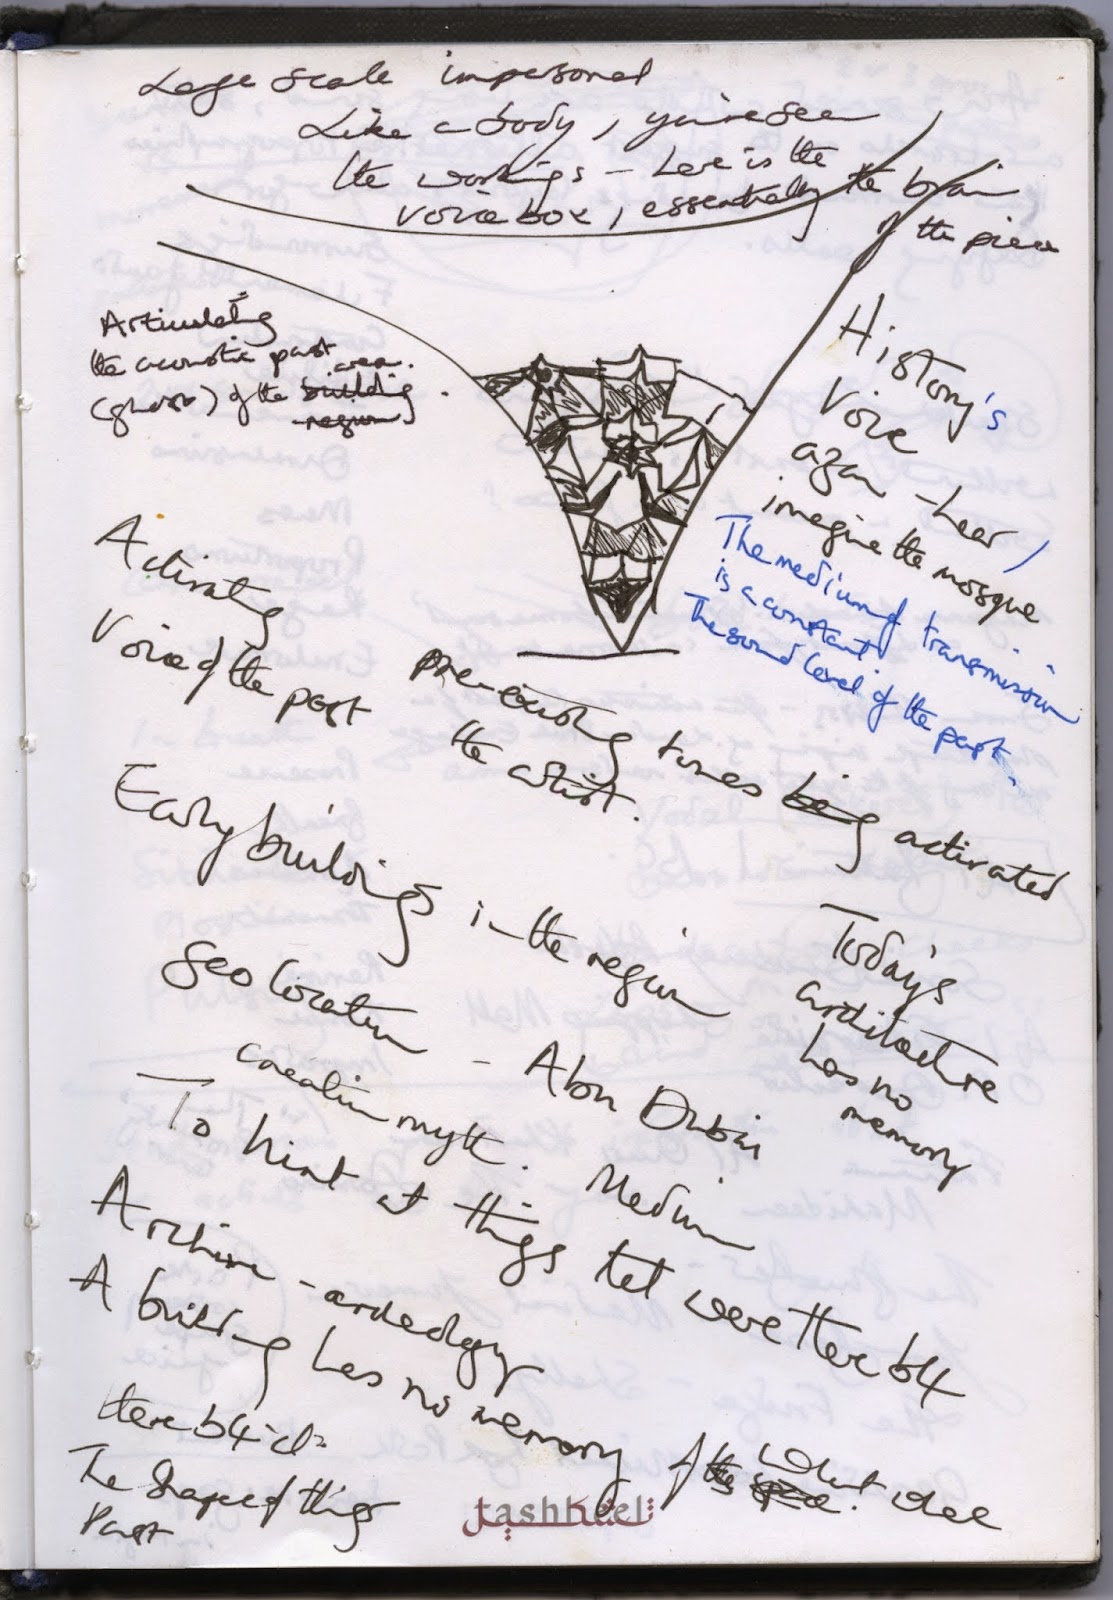 Large scale impersonal
Like a body, you're see
the workings – here is the the brain
voice box, essentially of the piece
Articulating
the acoustic past area.
(ghost) of the building
region
History's
Voice
azan – hear /
imagine the mosque
The medium of transmission
is a constant
The sound level of the past.
Activating
Voice of the past
pre-existing tones being activated
the artist.
Early buildings in the region
Today's
architecture
has no
memory
Geo location – Abu Dubai
creation myth. Medium
To hint at things tet were there b4
Archive – archeology
A building has no memory of the space. What else
there b4
The Shape of things
Past
tashkeel